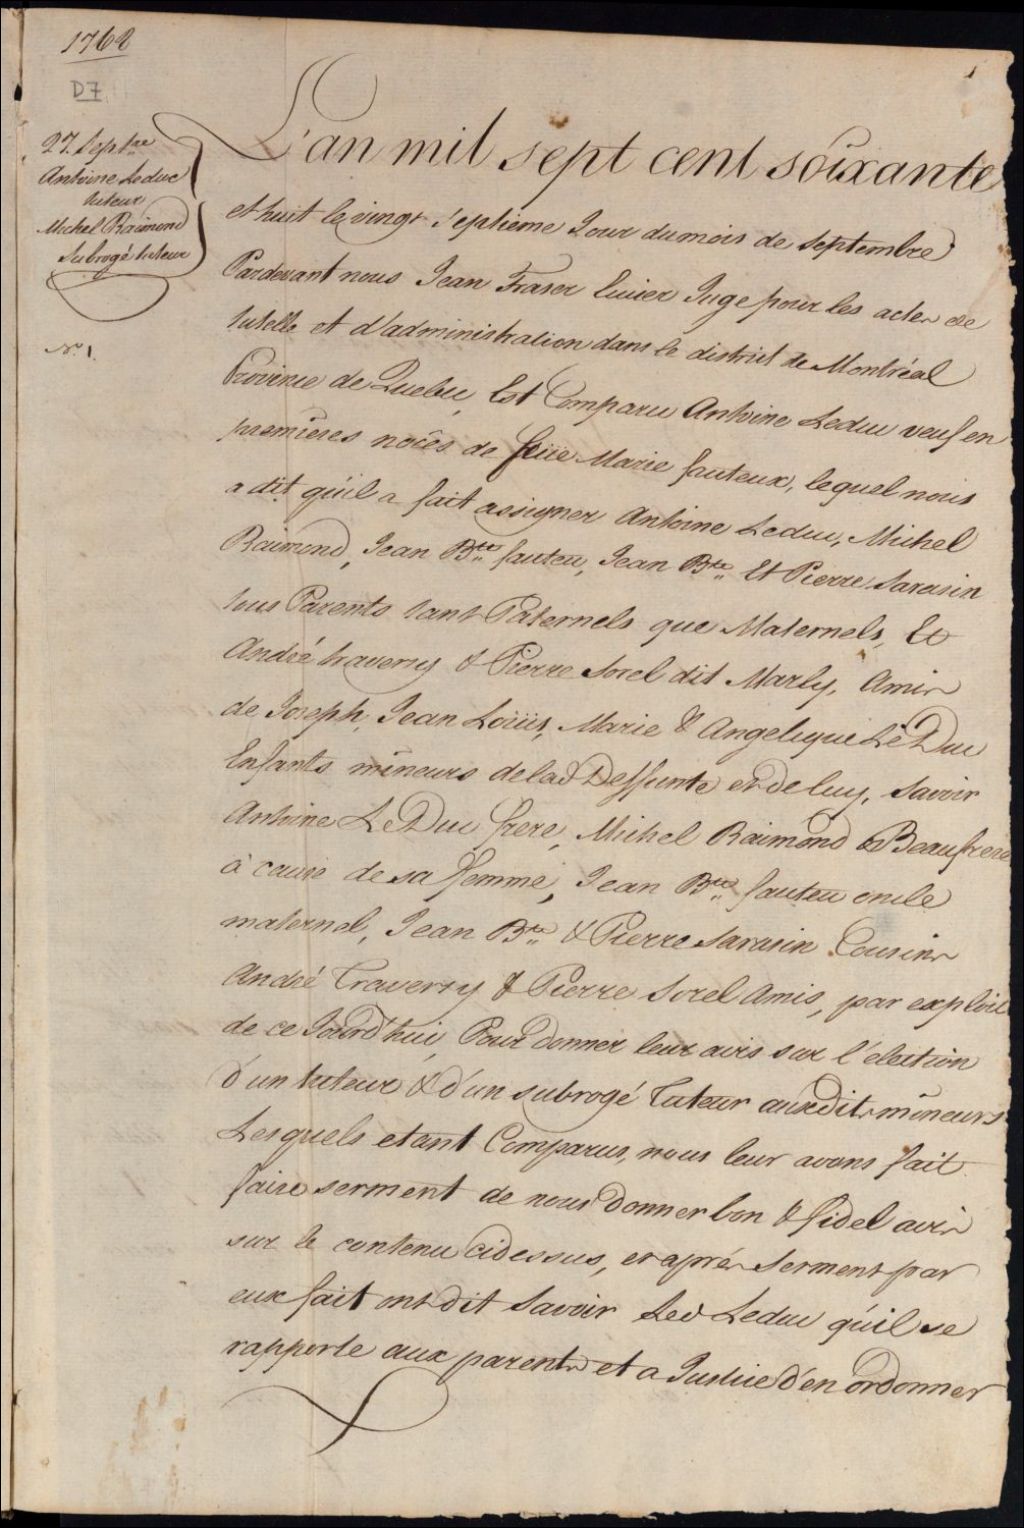 1768
D7
1
27. Septre
Antoine Leduc
tuteur
Michel Raimond
Subrogé tuteur
No. 1.
L'an mil sept cent soixante
et huit le vingt septieme Jour du mois de Septembre
Pardevant nous Jean Fraser Ecuier Juge pour les actes de
tutelle et d'administration dans le district de Montréal
Province de Quebec, Est Comparu Antoine Leduc veuf en
premieres noces de feüe Marie fauteux, lequel nous
a dit qu'il a fait assigner Antoine Leduc, Michel
Raimond, Jean Bte fauteu, Jean Bte Et Pierre Sarasin
tous Parents tant Paternels que Maternels, Et
André traversy & Pierre Sorel dit Marly, Amis
de Joseph, Jean Loüis, Marie & Angelique Le Duc
Enfants mineurs de lad Deffunte et de luy, Savoir
Antoine Le Duc frere, Michel Raimond Beaufrere
à cause de sa femme, Jean Bte fauteu oncle
maternel, Jean Bte & Pierre Sarasin Cousins
André Traversy & Pierre Sorel Amis, par exploit
de ce Jourd'hui, Pour donner leur avis sur l'election
d'un tuteur & d'un subrogé Tuteur auxdits mineurs
Lesquels etant Comparus, nous leur avons fait
faire serment de nous donner bon & fidel avis
sur le contenu cidessus, et aprés Serment par
eux fait ont dit Savoir Led Leduc qu'il se
rapporte aux parents et a Justice d'en ordonner